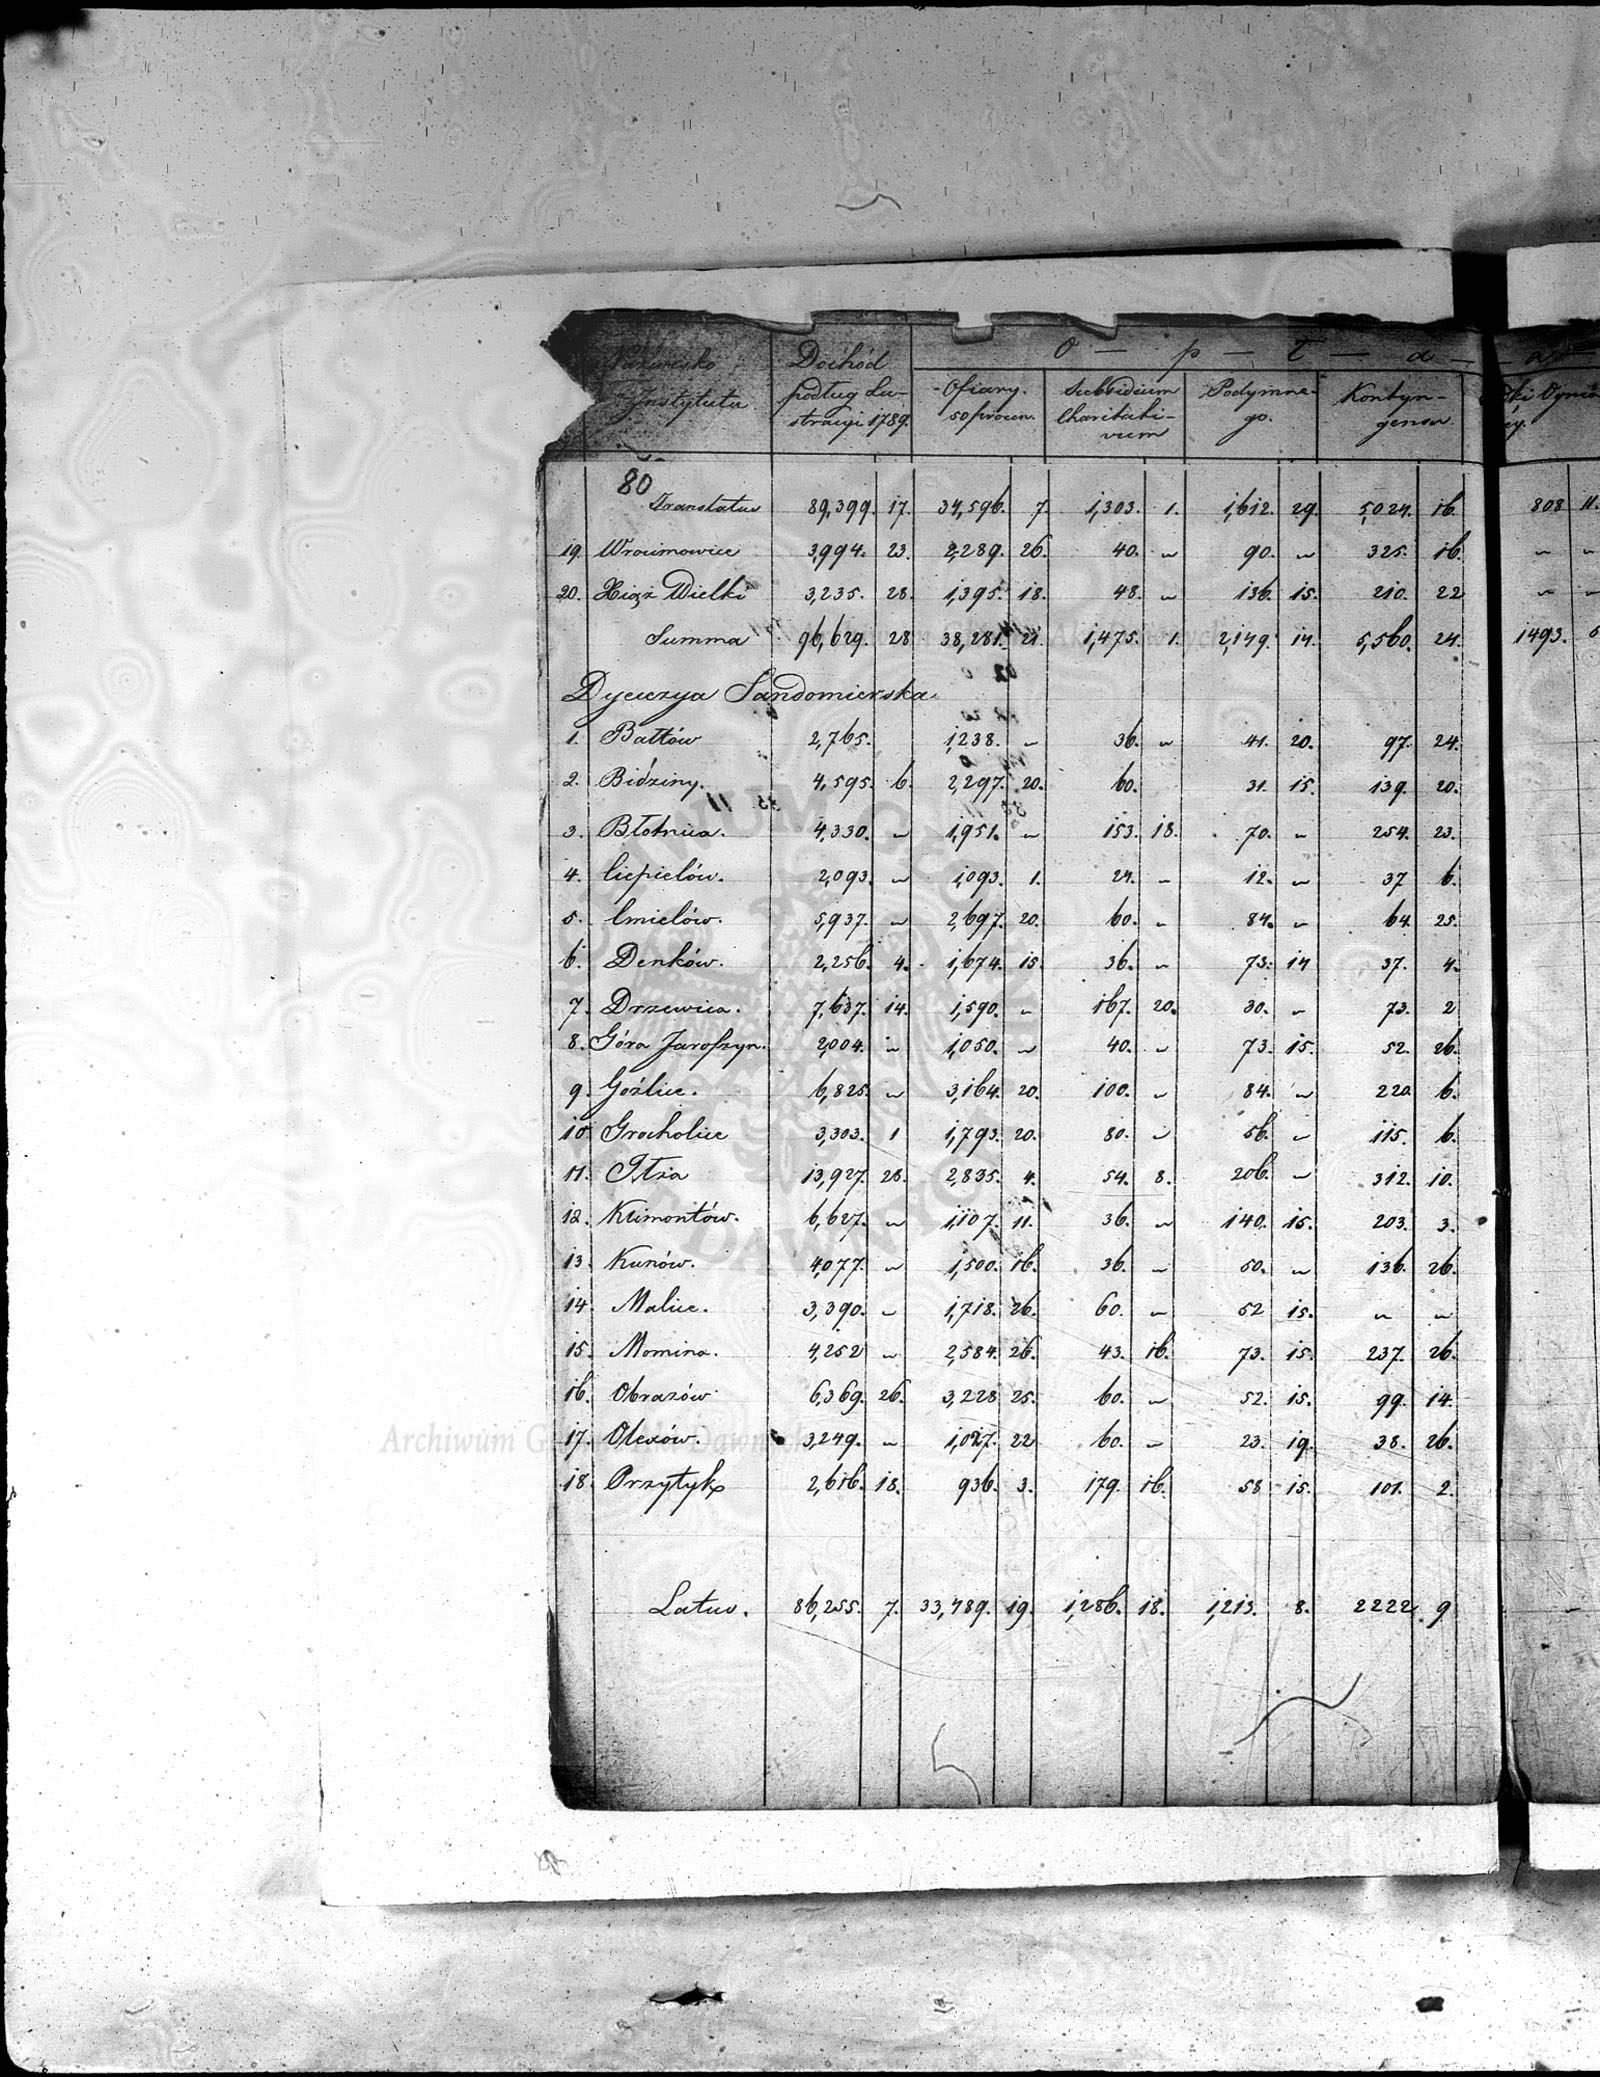 Nazwisko Instytutu | Dochód podług Lustracyi 1789. | O — p — ł — a —
Ofiary 50 procen. | Subsidium Charitativum | Podymnego. | Kontyngensu
80
Translatus 89,399. 17. 34,596. 7. 1,303. 1. 1,612. 29. 5,024. 16. 808 11.
19. Wrocimowice 3,994. 23. 2,289. 26. 40. ~ 90. ~ 325. 16. ~ ~
20. Xiąż Wielki 3,235. 28. 1,395. 18. 48. ~ 136. 15. 210. 22 ~ ~
Summa 96,629. 28 38,281. 21. 1,475. 1. 2,149. 14. 5,560. 24. 1493. 5
Dyecezya Sandomierska.
1. Bałtów 2,765. 1,238. ~ 36. ~ 41. 20. 97. 24.
2. Bidziny. 4,595. 6. 2,297. 20. 60. 31. 15. 139. 20.
3. Błotnica. 4,330. ~ 1,951. ~ 153. 18. 70. ~ 254. 23.
4. Ciepielów. 2,093. ~ 1,093. 1. 24. ~ 12. ~ 37 6.
5. Cmielów. 5,937. ~ 2,697. 20. 60. ~ 84. ~ 64. 25.
6. Denków. 2,256. 4. 1,674. 15. 36. ~ 73. 14 37. 4.
7. Drzewica. 7,637. 14. 1,590. ~ 167. 20. 30. ~ 73. 2
8. Góra Jaroszyn. 2,004. ~ 1,050. ~ 40. ~ 73. 15. 52. 26.
9. Goźlice. 6,825. ~ 3,164. 20. 100. ~ 84. ~ 220. 6.
10. Grocholice 3,303. 1 1,793. 20. 80. ~ 56. ~ 115. 6.
11. Iłża 13,927. 28. 2,835. 4. 54. 8. 206. ~ 312. 10.
12. Klimontów. 6,627. ~ 1,107. 11. 36. ~ 140. 15. 203. 3.
13. Kunów. 4,077. ~ 1,500. 16. 36. ~ 50. ~ 136. 26.
14. Malice. 3,390. ~ 1,718. 26. 60. ~ 52 15. ~ ~
15. Momina. 4,252 ~ 2,584. 26. 43. 16. 73. 15. 237. 26.
16. Obrazów. 6,369. 26. 3,228 25. 60. ~ 52. 15. 99. 14.
17. Olexów. 3,249. ~ 1,027. 22 60. ~ 23. 19. 38. 26.
18. Przytyk 2,616. 18. 936. 3. 179. 16. 58 15. 101. 2.
Latus. 86,255. 7. 33,489. 19. 1,286. 18. 1,213. 8. 2222. 9 ~